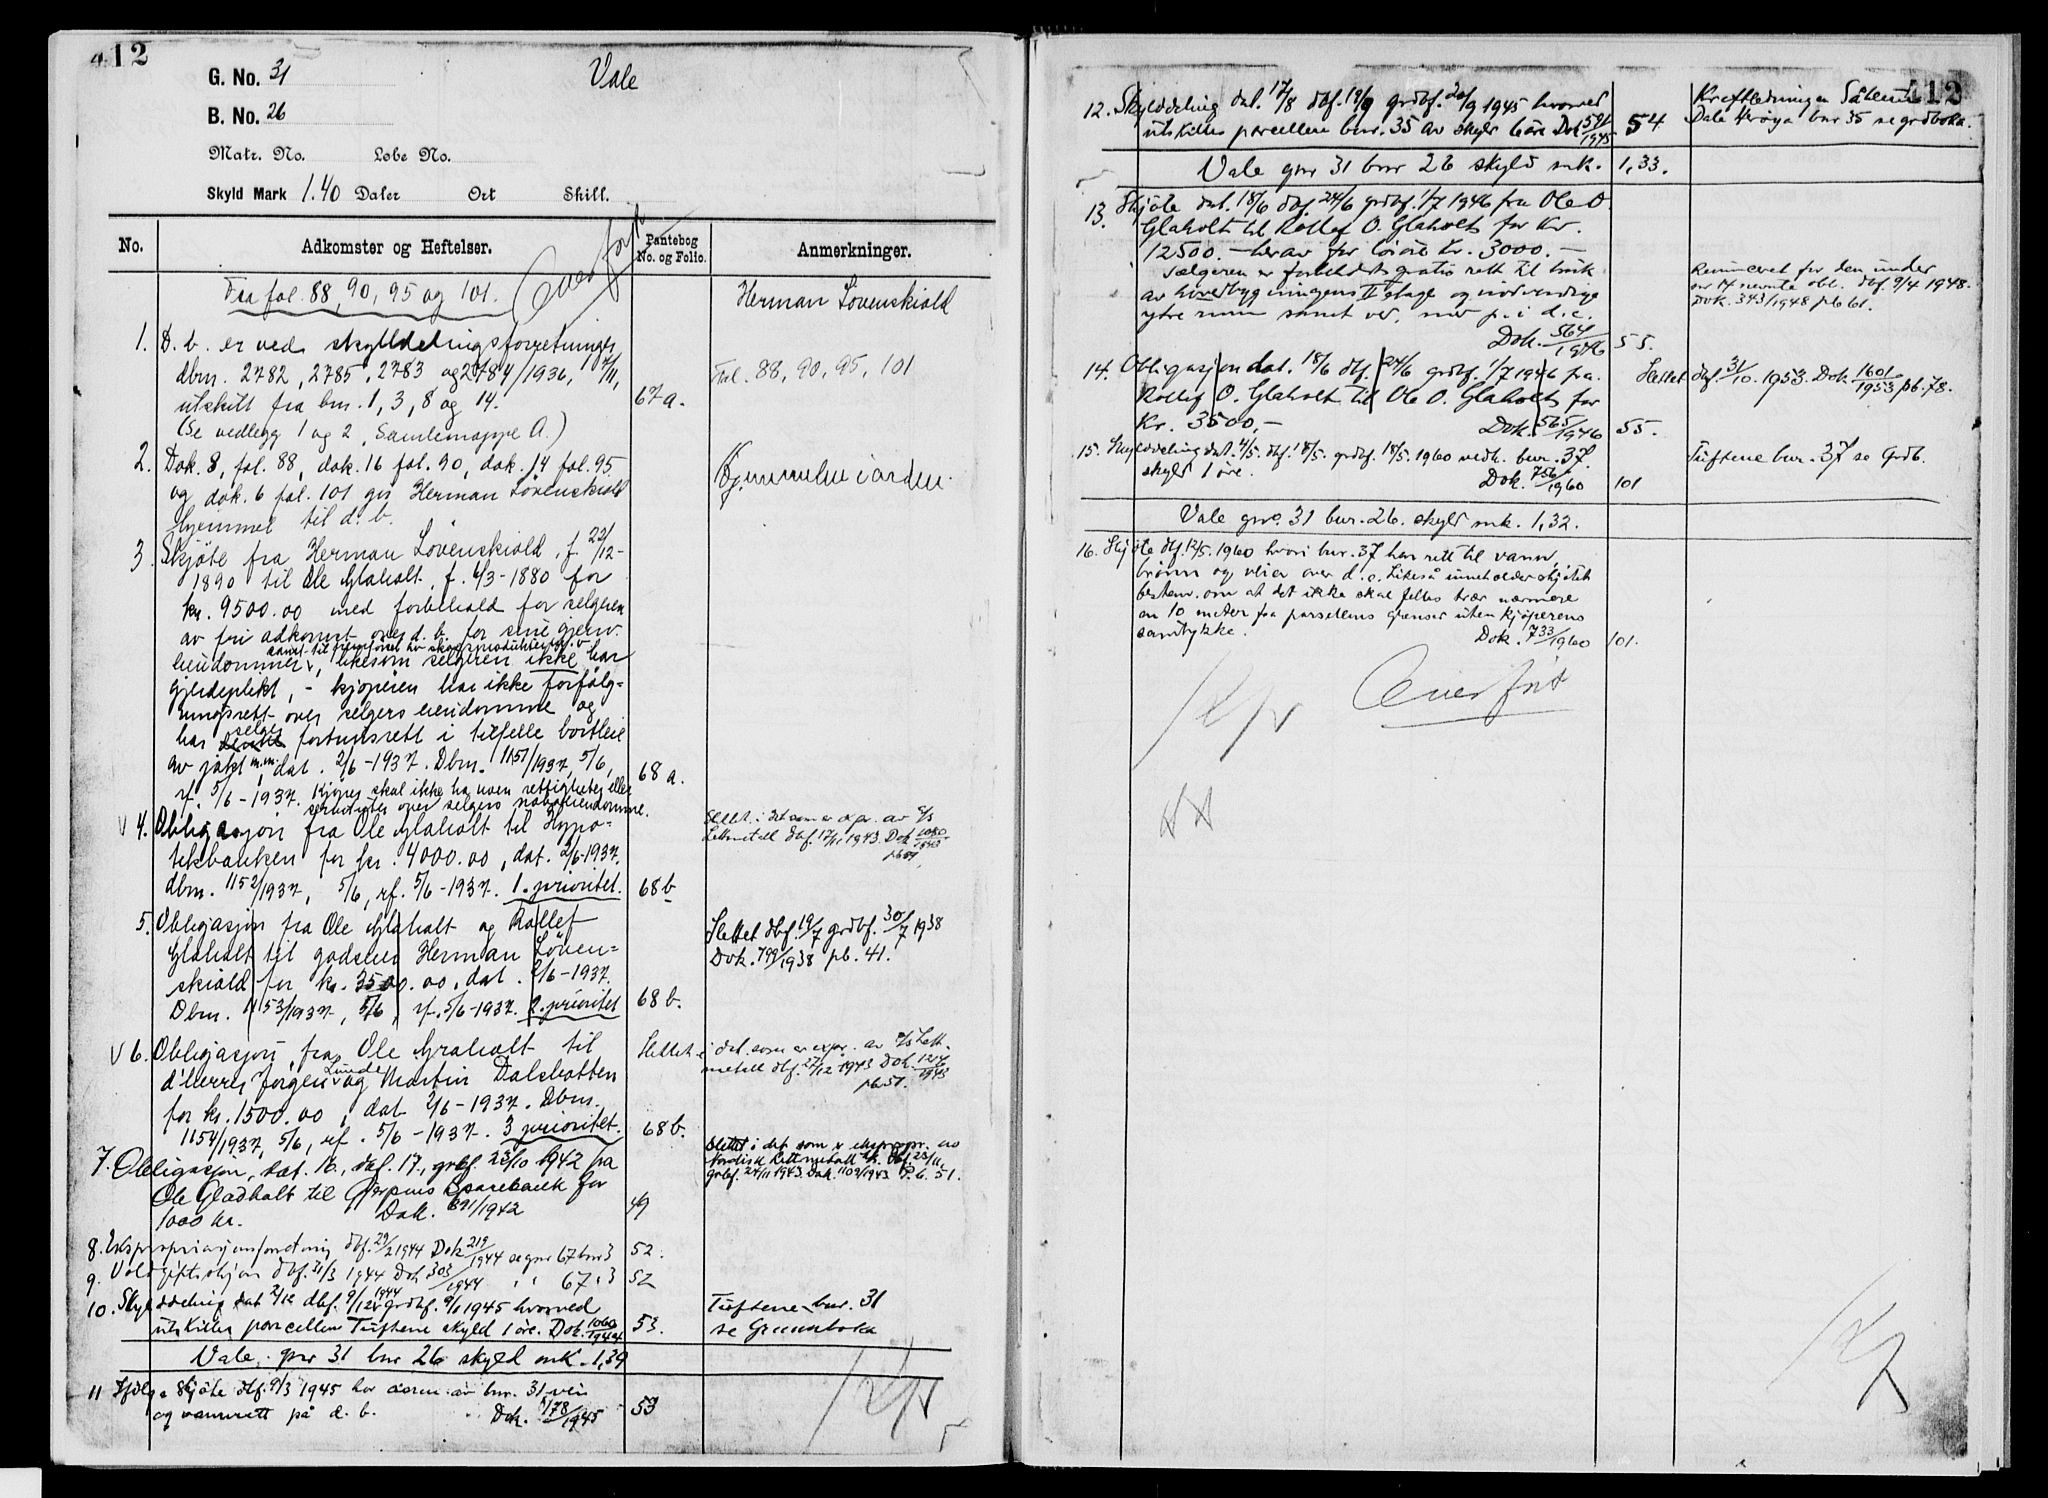 412
G. No. 31
Vale
B. No. 26
Matr. No. Løbe No.
Skyld Mark 1.40 Daler Ort Skill.
No.
Adkomster og Heftelser.
Pantebog No. og Folio.
Anmerkninger.
Overført
Fra fol. 88, 90, 95 og 101.
Herman Lövenskiold
1. D. b. er ved skylddelingsforretninger
dbnr. 2782, 2785, 2783 og 2784/1936, 11,
Fol. 88, 90, 95, 101
utskilt fra bnr. 1, 3, 8 og 14.
67a.
(Se vedlegg 1 og 2, Samlemappe A.)
2. Dok. 8, fol. 88, dok. 16 fol. 90, dok. 14 fol. 95
og dok. 6 fol. 101 gir Herman Lövenskiold
hjemmel til d. b.
Hjemmelen i orden.
3. Skjöte fra Herman Lövenskiold, f. 22/12-
1890 til Ole Glaholt, f. 4/3-1880 for
kr. 9500.00 med forbehold for selgeren
av fri adkomst over d. b. for sine gjenv.
samt til fremförsel av skogsprodukter
eiendommer, likesom selgeren ikke har
gjerdeplikt, - kjöperen har ikke forfölg-
ningsrett over selgers eiendomme og
har selger fortrinsrett i tilfelle bortleie
av jakt m.m. dat. 2/6-1937. Dbnr. 1151/1937, 5/6,
68 a.
rf. 5/6-1937. Kjöper skal ikke ha noen rettigheter eller
servitutter over selgers naboeiendomme.
V 4. Obligasjon fra Ole Glaholt til Hypo-
tekbanken for kr. 4000.00, dat. 2/6-1937.
dbnr. 1152/1937, 5/6, rf. 5/6-1937. 1. prioritet.
68b
Slettet i det som er expr. av A/S
Lettmetall dbf. 17/11 1943. Dok 1080/1943
pb 51
5. Obligasjon fra Ole Glaholt og Rollef
Glaholt til godseier Herman Löven-
skiold for kr. 3500.00, dat. 2/6-1937.
Dbnr. 1153/1937, 5/6, rf. 5/6-1937. 2. prioritet
68 b.
Slettet dbf. 19/7 grdbf. 30/7 1938
Dok. 799/1938 pb. 41.
V 6. Obligasjon fra Ole Graholt til
d'herrer Jörgen Lunde og Martin Dalsbotten
for kr. 1500.00, dat 2/6-1937. Dbnr.
1154/1937, 5/6, rf. 5/6-1937. 3 prioritet.
68b.
Slettet i det som er expr. av A/S Lett-
metall dbf. 27/12 1943 Dok. 1246/1943
pb 51.
7. Obligasjon, dat. 16., dbf. 17., grbf. 23/10 1942 fra
Ole Gladholt til Gjerpens Sparebank for
1000 kr. Dok. 891/1942
49
Slettet i det som er ekspropr. av
Nordisk Lettmetall A/S. Dbf 23/11,
Grbf. 24/11 1943. Dok. 1109/1943 P. b. 51.
8. Ekspropriasjonsforretning dbf. 29/2 1944 Dok 219/1944 se gnr 67 bnr 3
52.
9. Voldgiftsskjön dbf. 31/3 1944 Dok 303/1944 " " 67 " 3
52
10. Skylddeling dat 2/12 dbf. 9/12 1944 grdbf. 9/1 1945 hvorved
utskilles parcellen Tuftene skyld 1 öre. Dok. 1060/1944
53.
Tuftene bnr. 31
se Grunnboka
Vale, gnr 31 bnr 26 skyld mk. 1,39
11 Ifölge Skjöte dbf. 9/3 1945 har eieren av bnr. 31 vei
og vannrett på d. b. Dok. 178/1945
53
412
12. Skylddeling dat. 17/8 dbf. 19/9 grdbf. 20/9 1945 hvorved
utskilles parcellene bnr. 35 av skyld 6 öre Dok 591/1945
54
Kraftledningen
Dale Heröya bnr 35 se grdboka.
Vale gnr 31 bnr 26 skyld mk. 1,33.
13. Skjöte dat. 18/6 dbf. 24/6 grdbf. 1/7 1946 fra Ole O.
Glaholt til Rollef O. Glaholt for kr.
12500.- herav for lösöre kr. 3000.-
Selgeren er forbeholdt gratis rett til bruk
av hovedbygningens II etage og nödvendige
ytre rum samt ved, mv p. i d. e.
Dok. 564/1946
55.
Reminceret for den under
nr 14 nevnte obl. dbf. 9/4 1948.
Dok. 343/1948 pb 61.
14. Obligasjon dat. 18/6 dbf. 24/6 grdbf. 1/7 1946 fra
Rollef O. Glaholt til Ole O. Glaholt for
Kr. 3500,- Dok. 565/1946
55.
Slettet dbf. 31/10. 1953. Dok. 1601/1953 pb. 78.
15. Skylddeling dat. 4/5. dbf. 18/5. grdbf. 18/5. 1960 vedk. bnr. 37.
skyld 1 öre. Dok. 756/1960
101
Tuftene bnr. 37 se Grdb.
Vale gnr. 31 bnr. 26. skyld mk. 1,32.
16. Skjöte dbf. 12/5. 1960 hvori bnr. 37 har rett til vann,
brönn og veier over d. e. Likeså inneholder skjötet
bestem. om at det ikke skal felles trær nærmere
en 10 meter fra parsellens grenser uten kjöperens
samtykke. Dok. 733/1960
101.
Overfört